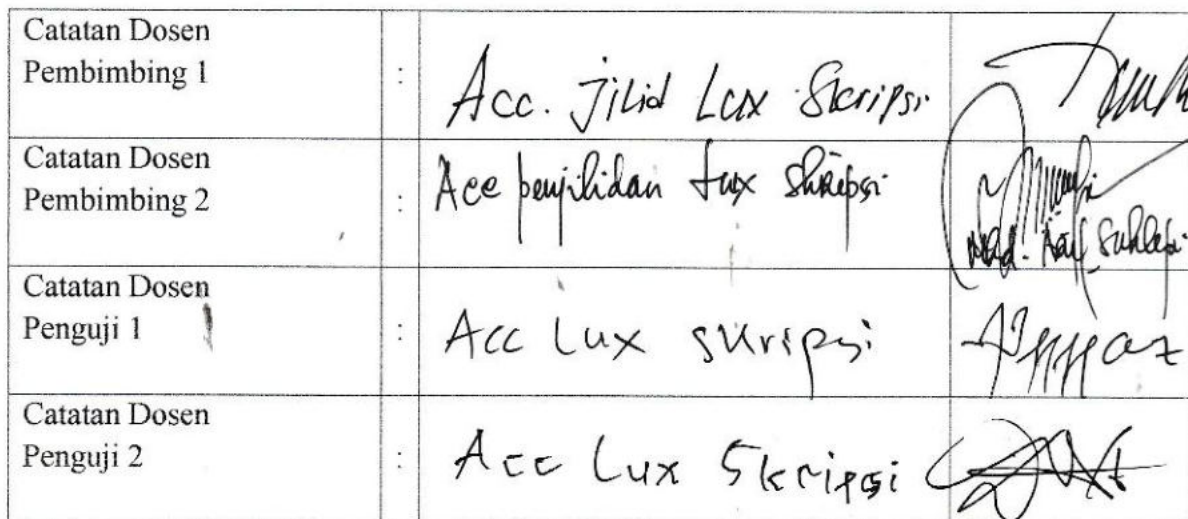 Catatan Dosen
Pembimbing 1 : Acc. Jilid Lux Skripsi
Catatan Dosen
Pembimbing 2 : Acc penjilidan Lux Skripsi
Catatan Dosen
Penguji 1 : Acc Lux skripsi
Catatan Dosen
Penguji 2 : Acc Lux Skripsi